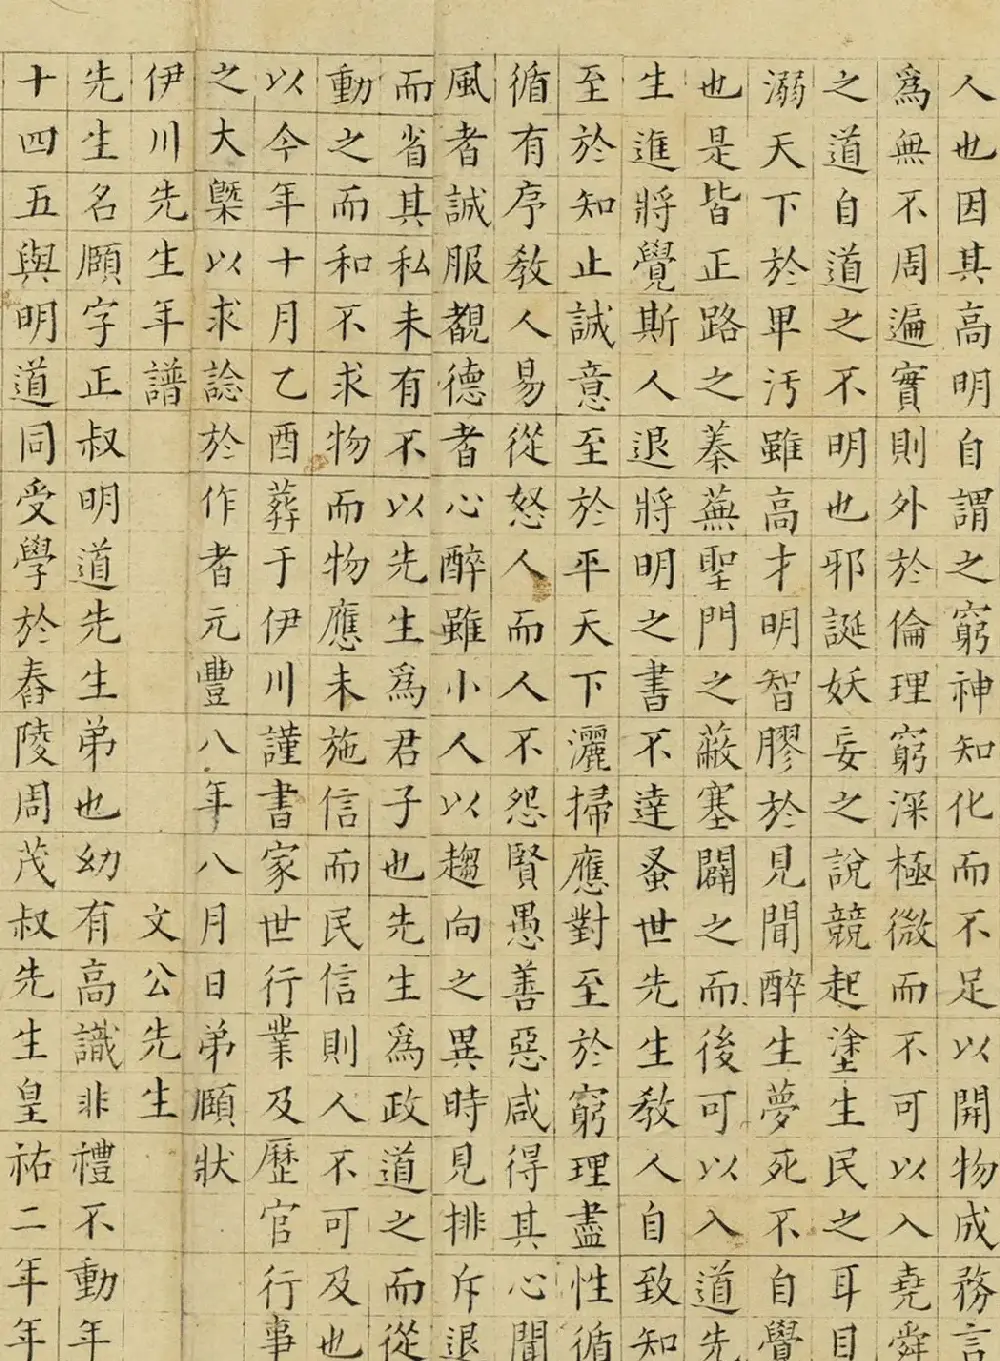 人也因其高明自謂之窮神知化而不足以開物成務言
爲無不周遍實則外於倫理窮深極微而不可以入堯舜
之道自道之不明也邪誕妖妄之說競起塗生民之耳目
溺天下於卑汚雖高才明智膠於見聞醉生夢死不自覺
也是皆正路之蓁蕪聖門之蔽塞闢之而後可以入道先
生進將覺斯人退將明之書不達蚤世先生教人自致知
至於知止誠意至於平天下灑掃應對至於窮理盡性循
循有序教人易從怒人而人不怨賢愚善惡咸得其心聞
風者誠服覩德者心醉雖小人以趨向之異時見排斥退
而省其私未有不以先生爲君子也先生爲政道之而從
動之而和不求物而物應未施信而民信則人不可及也
以今年十月乙酉葬于伊川謹書家世行業及歷官行事
之大槩以求誌於作者元豐八年八月日弟頤狀
伊川先生年譜 文公先生
先生名頤字正叔明道先生弟也幼有高識非禮不動年
十四五與明道同受學於舂陵周茂叔先生皇祐二年年